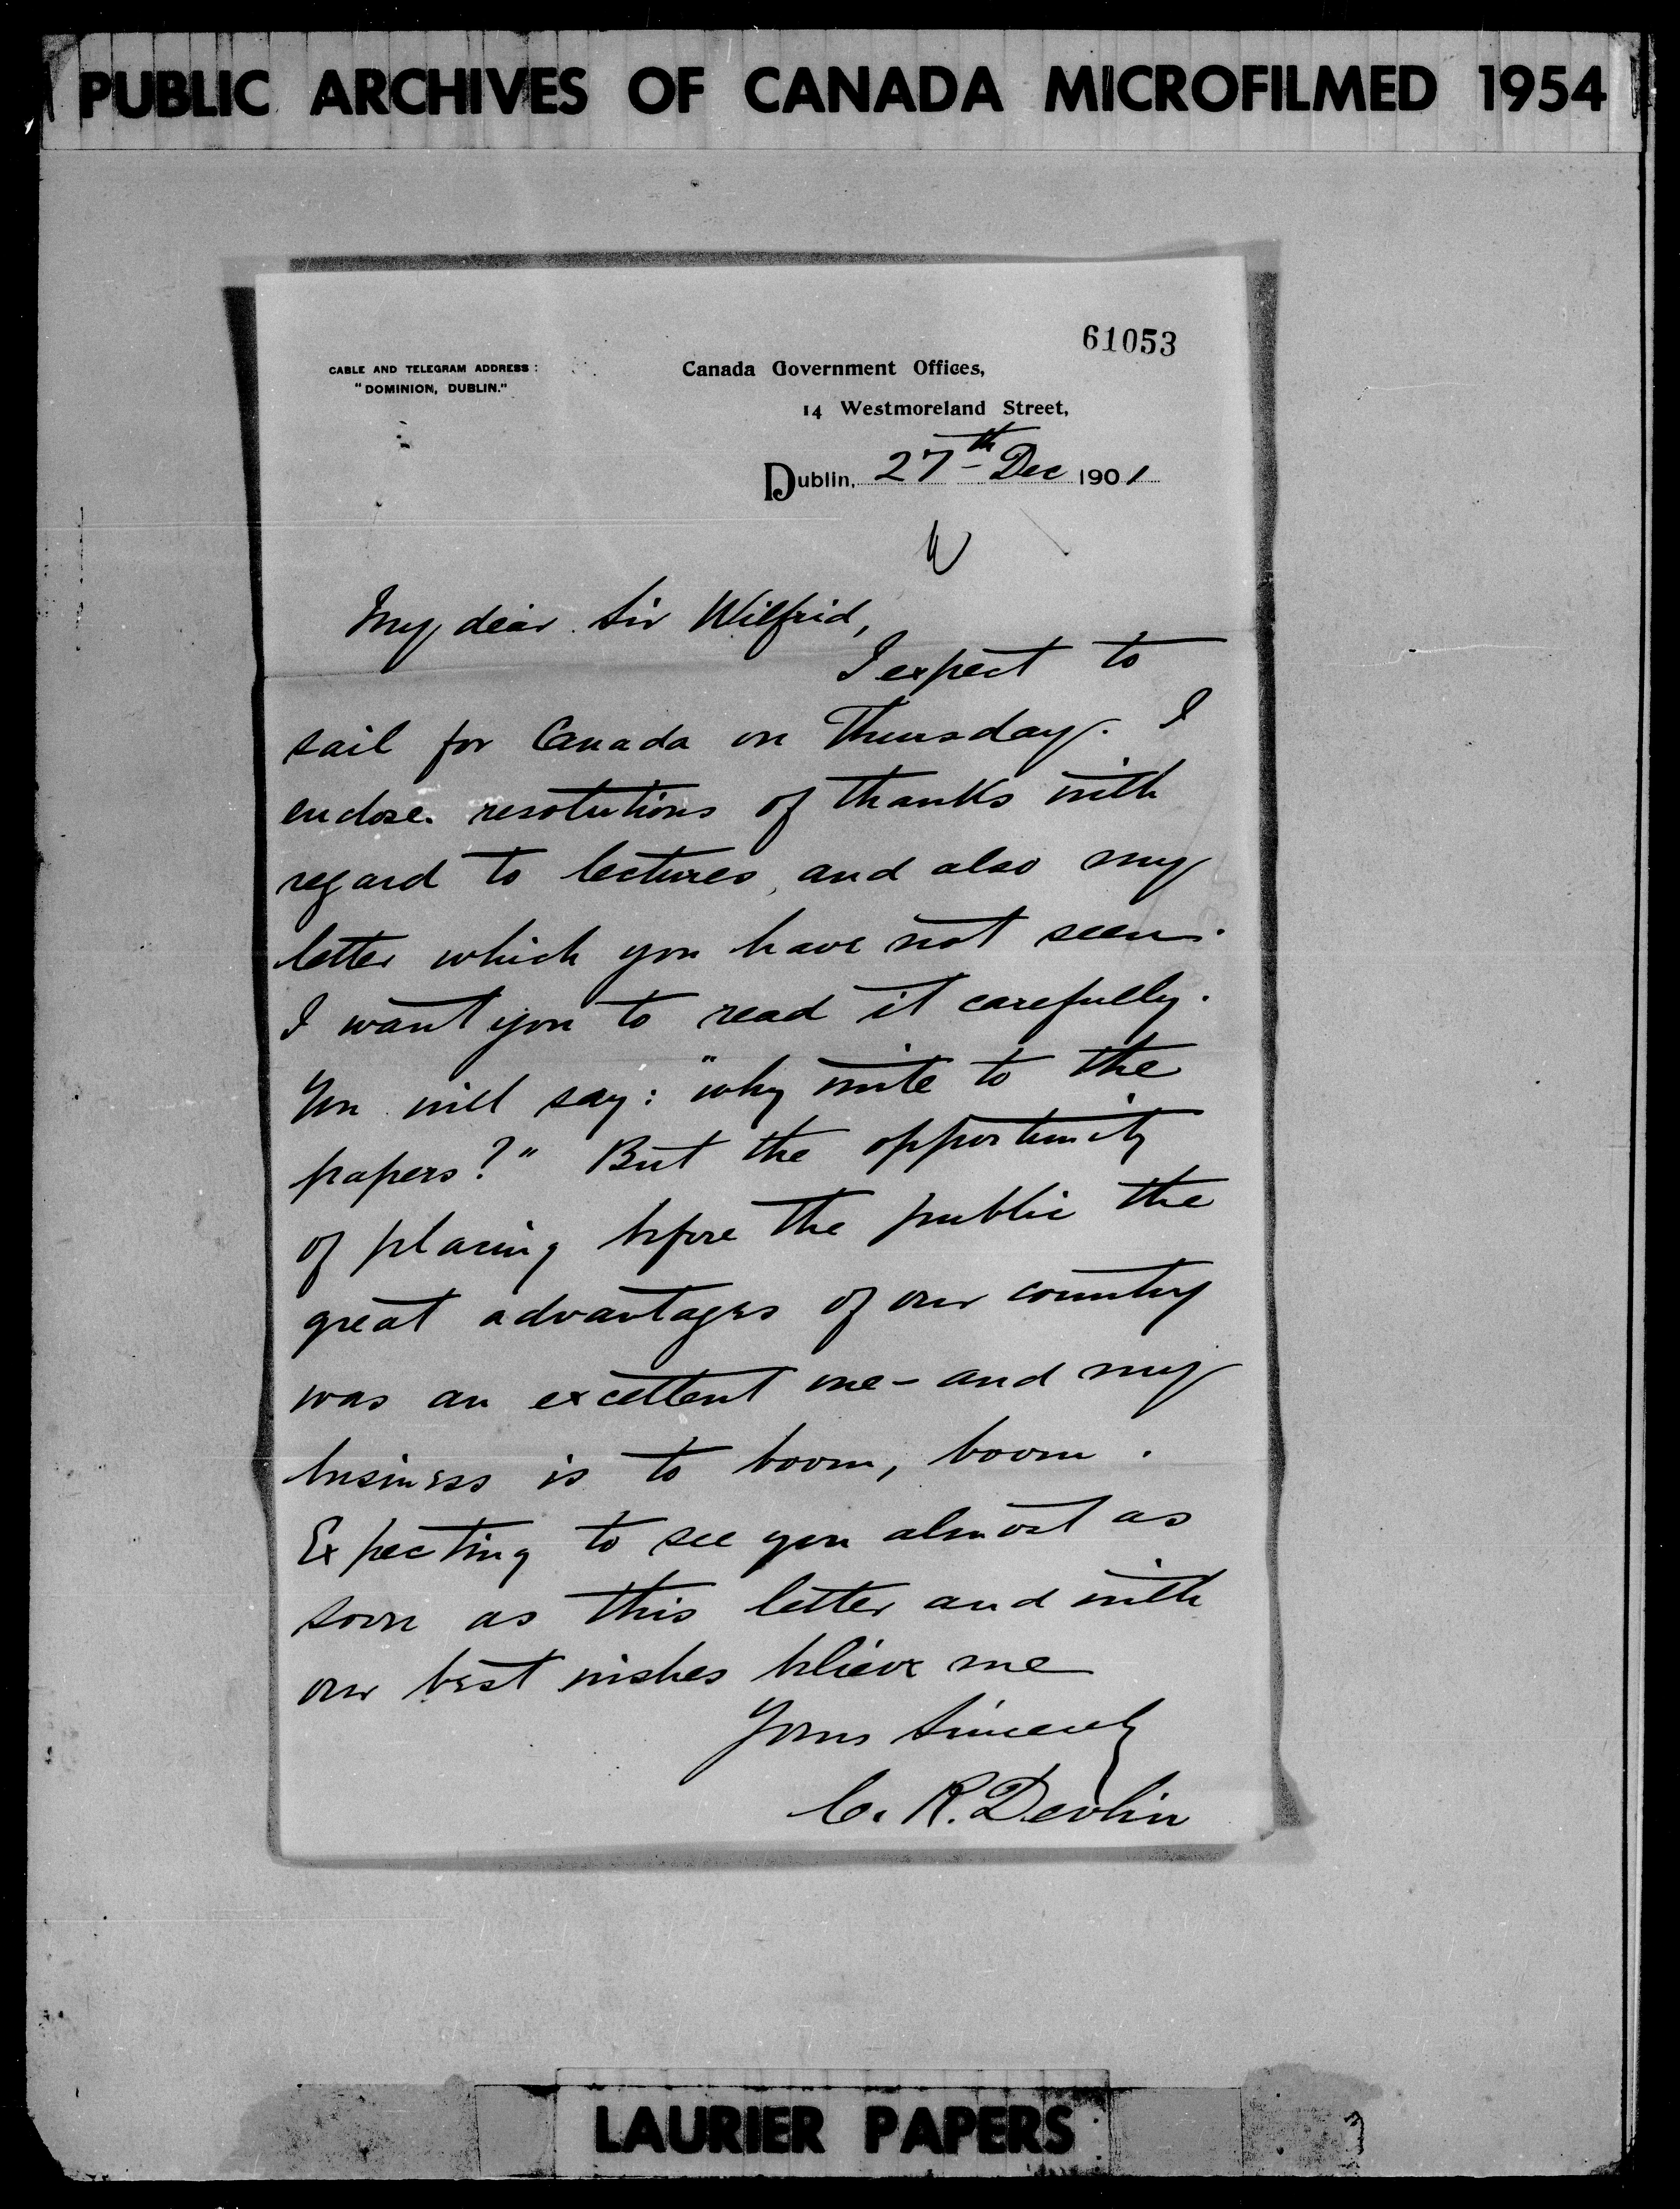 PUBLIC ARCHIVES OF CANADA MICROFILMED 1954
61053
CABLE AND TELEGRAM ADDRESS:
"DOMINION, DUBLIN."
Canada Government Offices,
14 Westmoreland Street,
Dublin, 27th Dec 1901
My dear Sir Wilfrid,
I expect to
sail for Canada on Thursday. I
enclose resolutions of thanks with
regard to lectures, and also my
letter which you have not seen.
I want you to read it carefully.
You will say: "why write to the
papers?" But the opportunity
of placing before the public the
great advantages of our country
was an excellent one - and my
business is to boom, boom.
Expecting to see you almost as
soon as this letter and with
our best wishes believe me
Yours sincerely
C. R. Devlin
LAURIER PAPERS